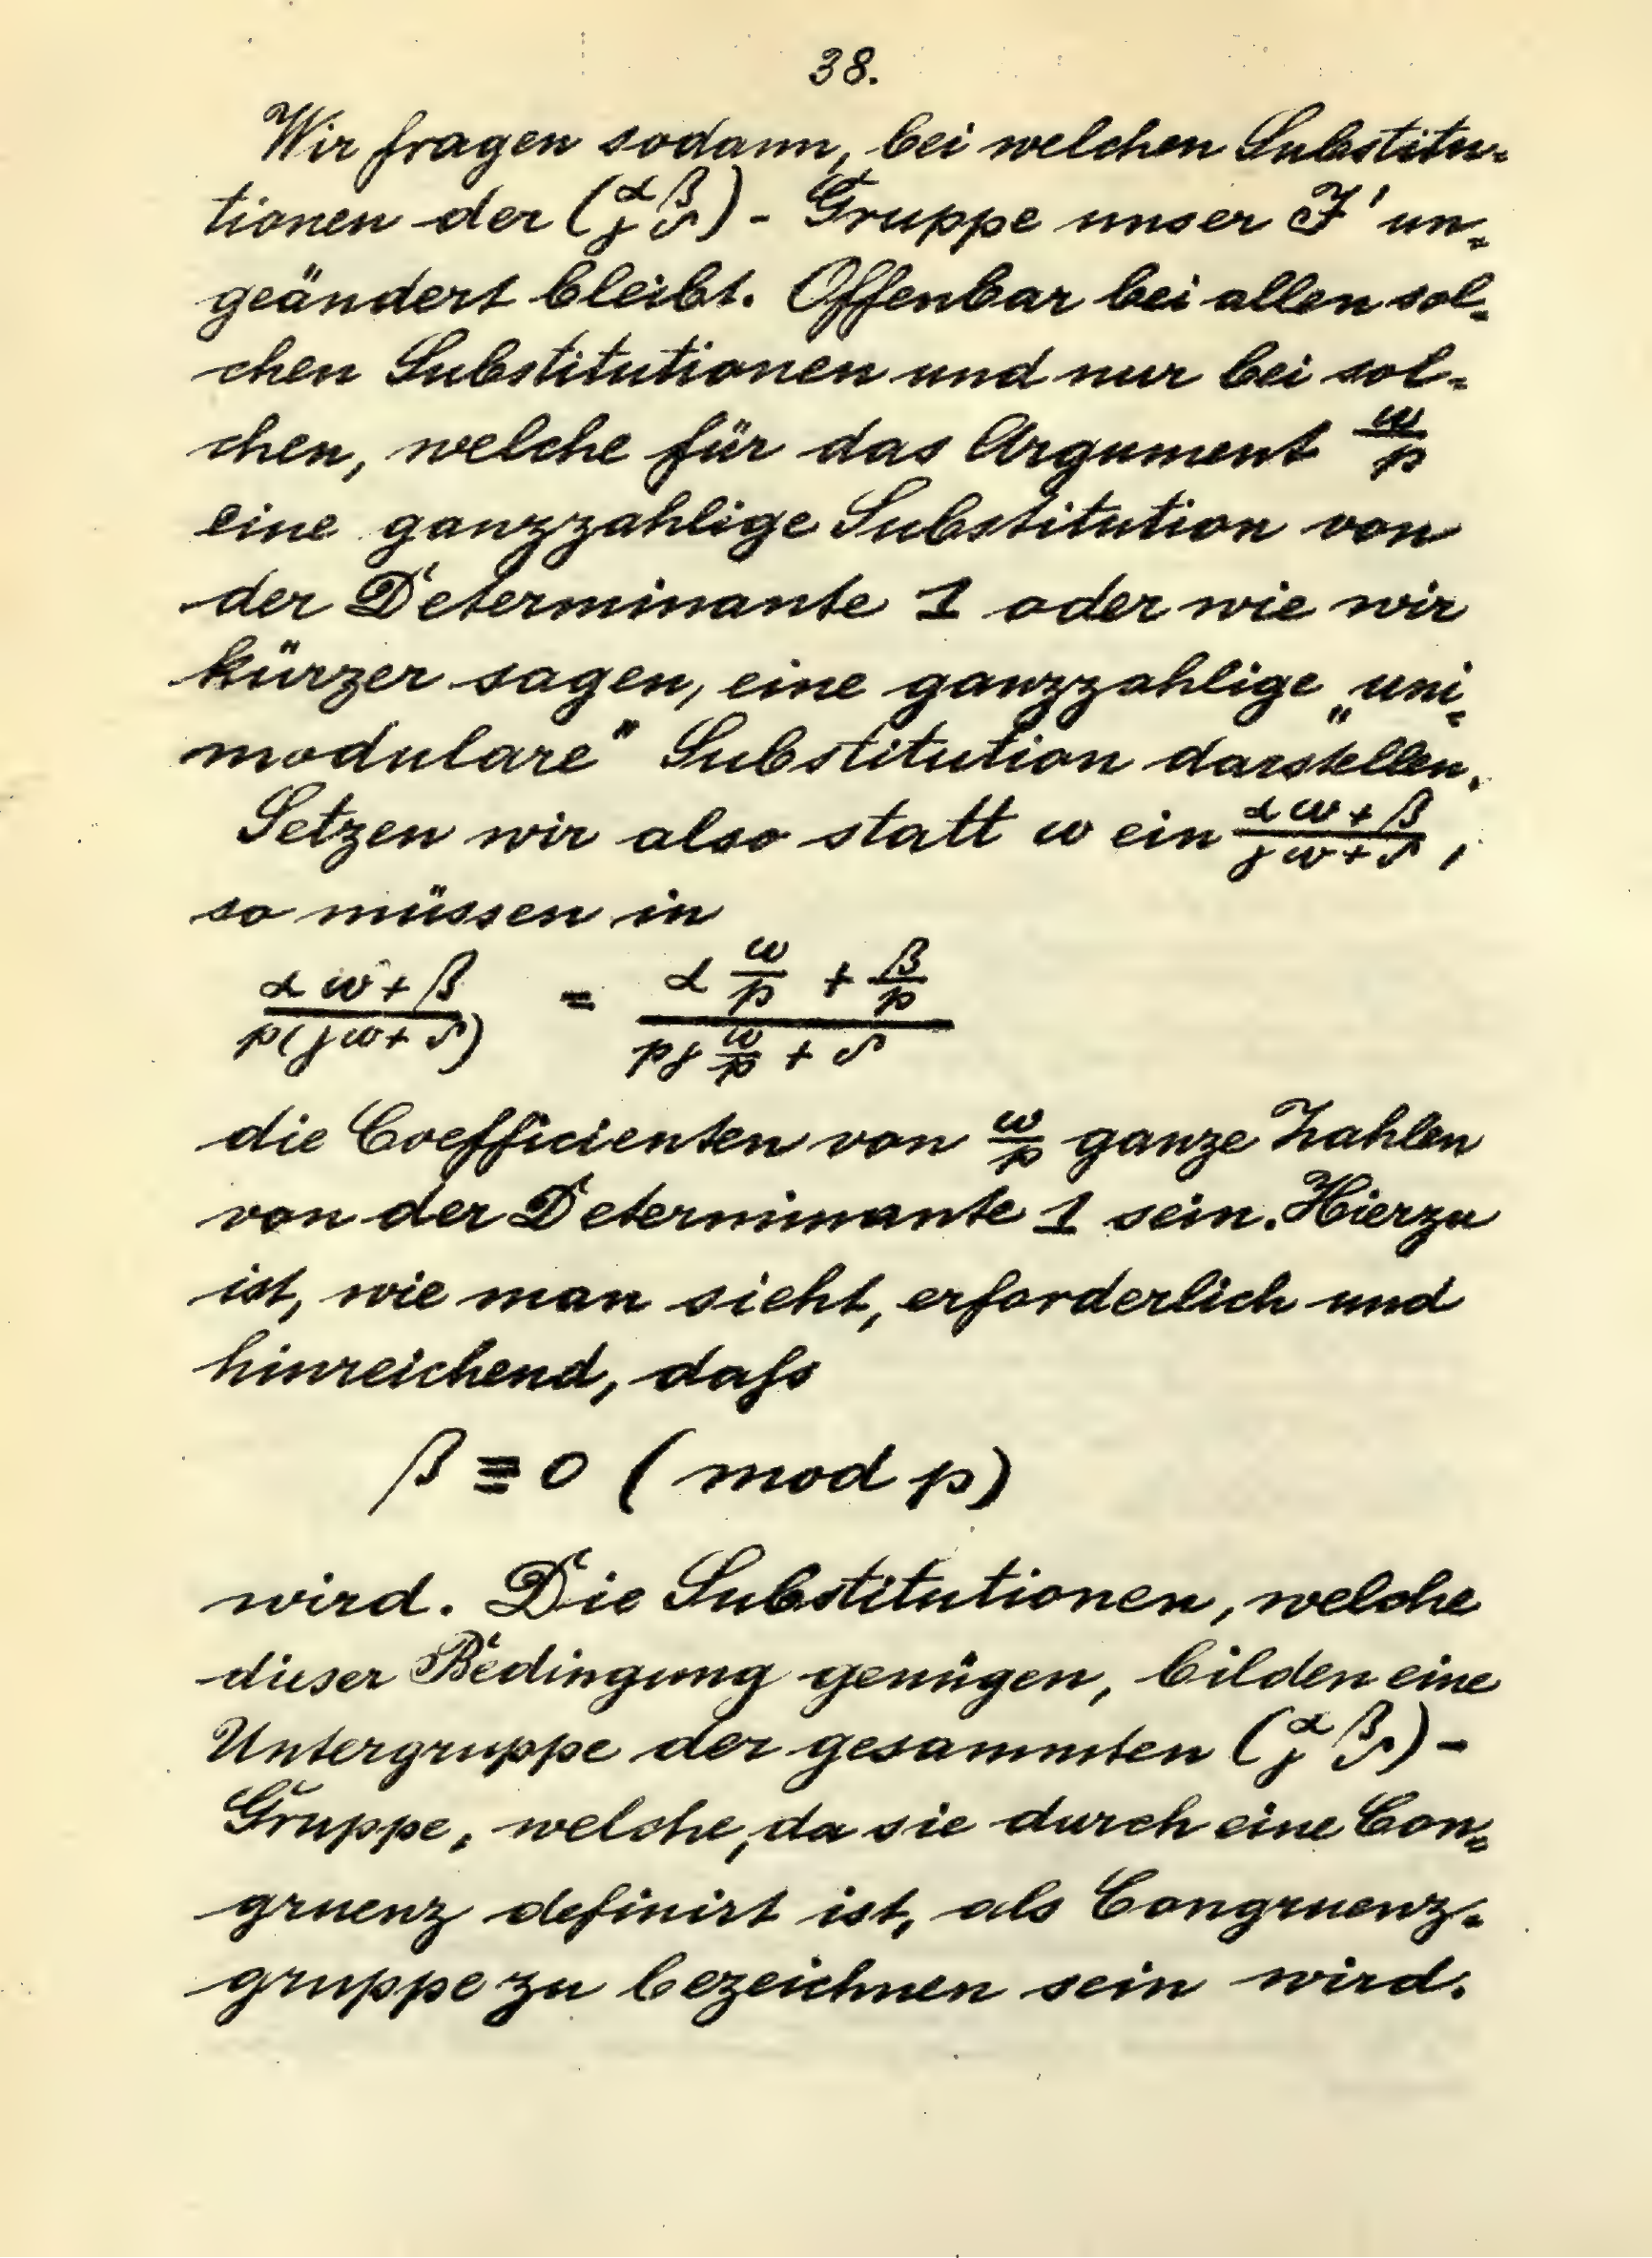 38.
Wir fragen sodann, bei welchen Substitu-
tionen der (α β γ δ) - Gruppe unser J' un-
geändert bleibt. Offenbar bei allen sol-
chen Substitutionen und nur bei sol-
chen, welche für das Argument ω/p
eine ganzzahlige Substitution von
der Determinante 1 oder wie wir
kürzer sagen, eine ganzzahlige „uni-
modulare" Substitution darstellen.
Setzen wir also statt ω ein (αω+β)/(γω+δ),
so müssen in
(αω+β)/(p(γω+δ)) = (α ω/p + β/p)/(pγ ω/p + δ)
die Coefficienten von ω/p ganze Zahlen
von der Determinante 1 sein. Hierzu
ist, wie man sieht, erforderlich und
hinreichend, daſs
β ≡ 0 (mod p)
wird. Die Substitutionen, welche
dieser Bedingung genügen, bilden eine
Untergruppe der gesammten (α β γ δ) -
Gruppe, welche, da sie durch eine Con-
gruenz definirt ist, als Congruenz-
gruppe zu bezeichnen sein wird.